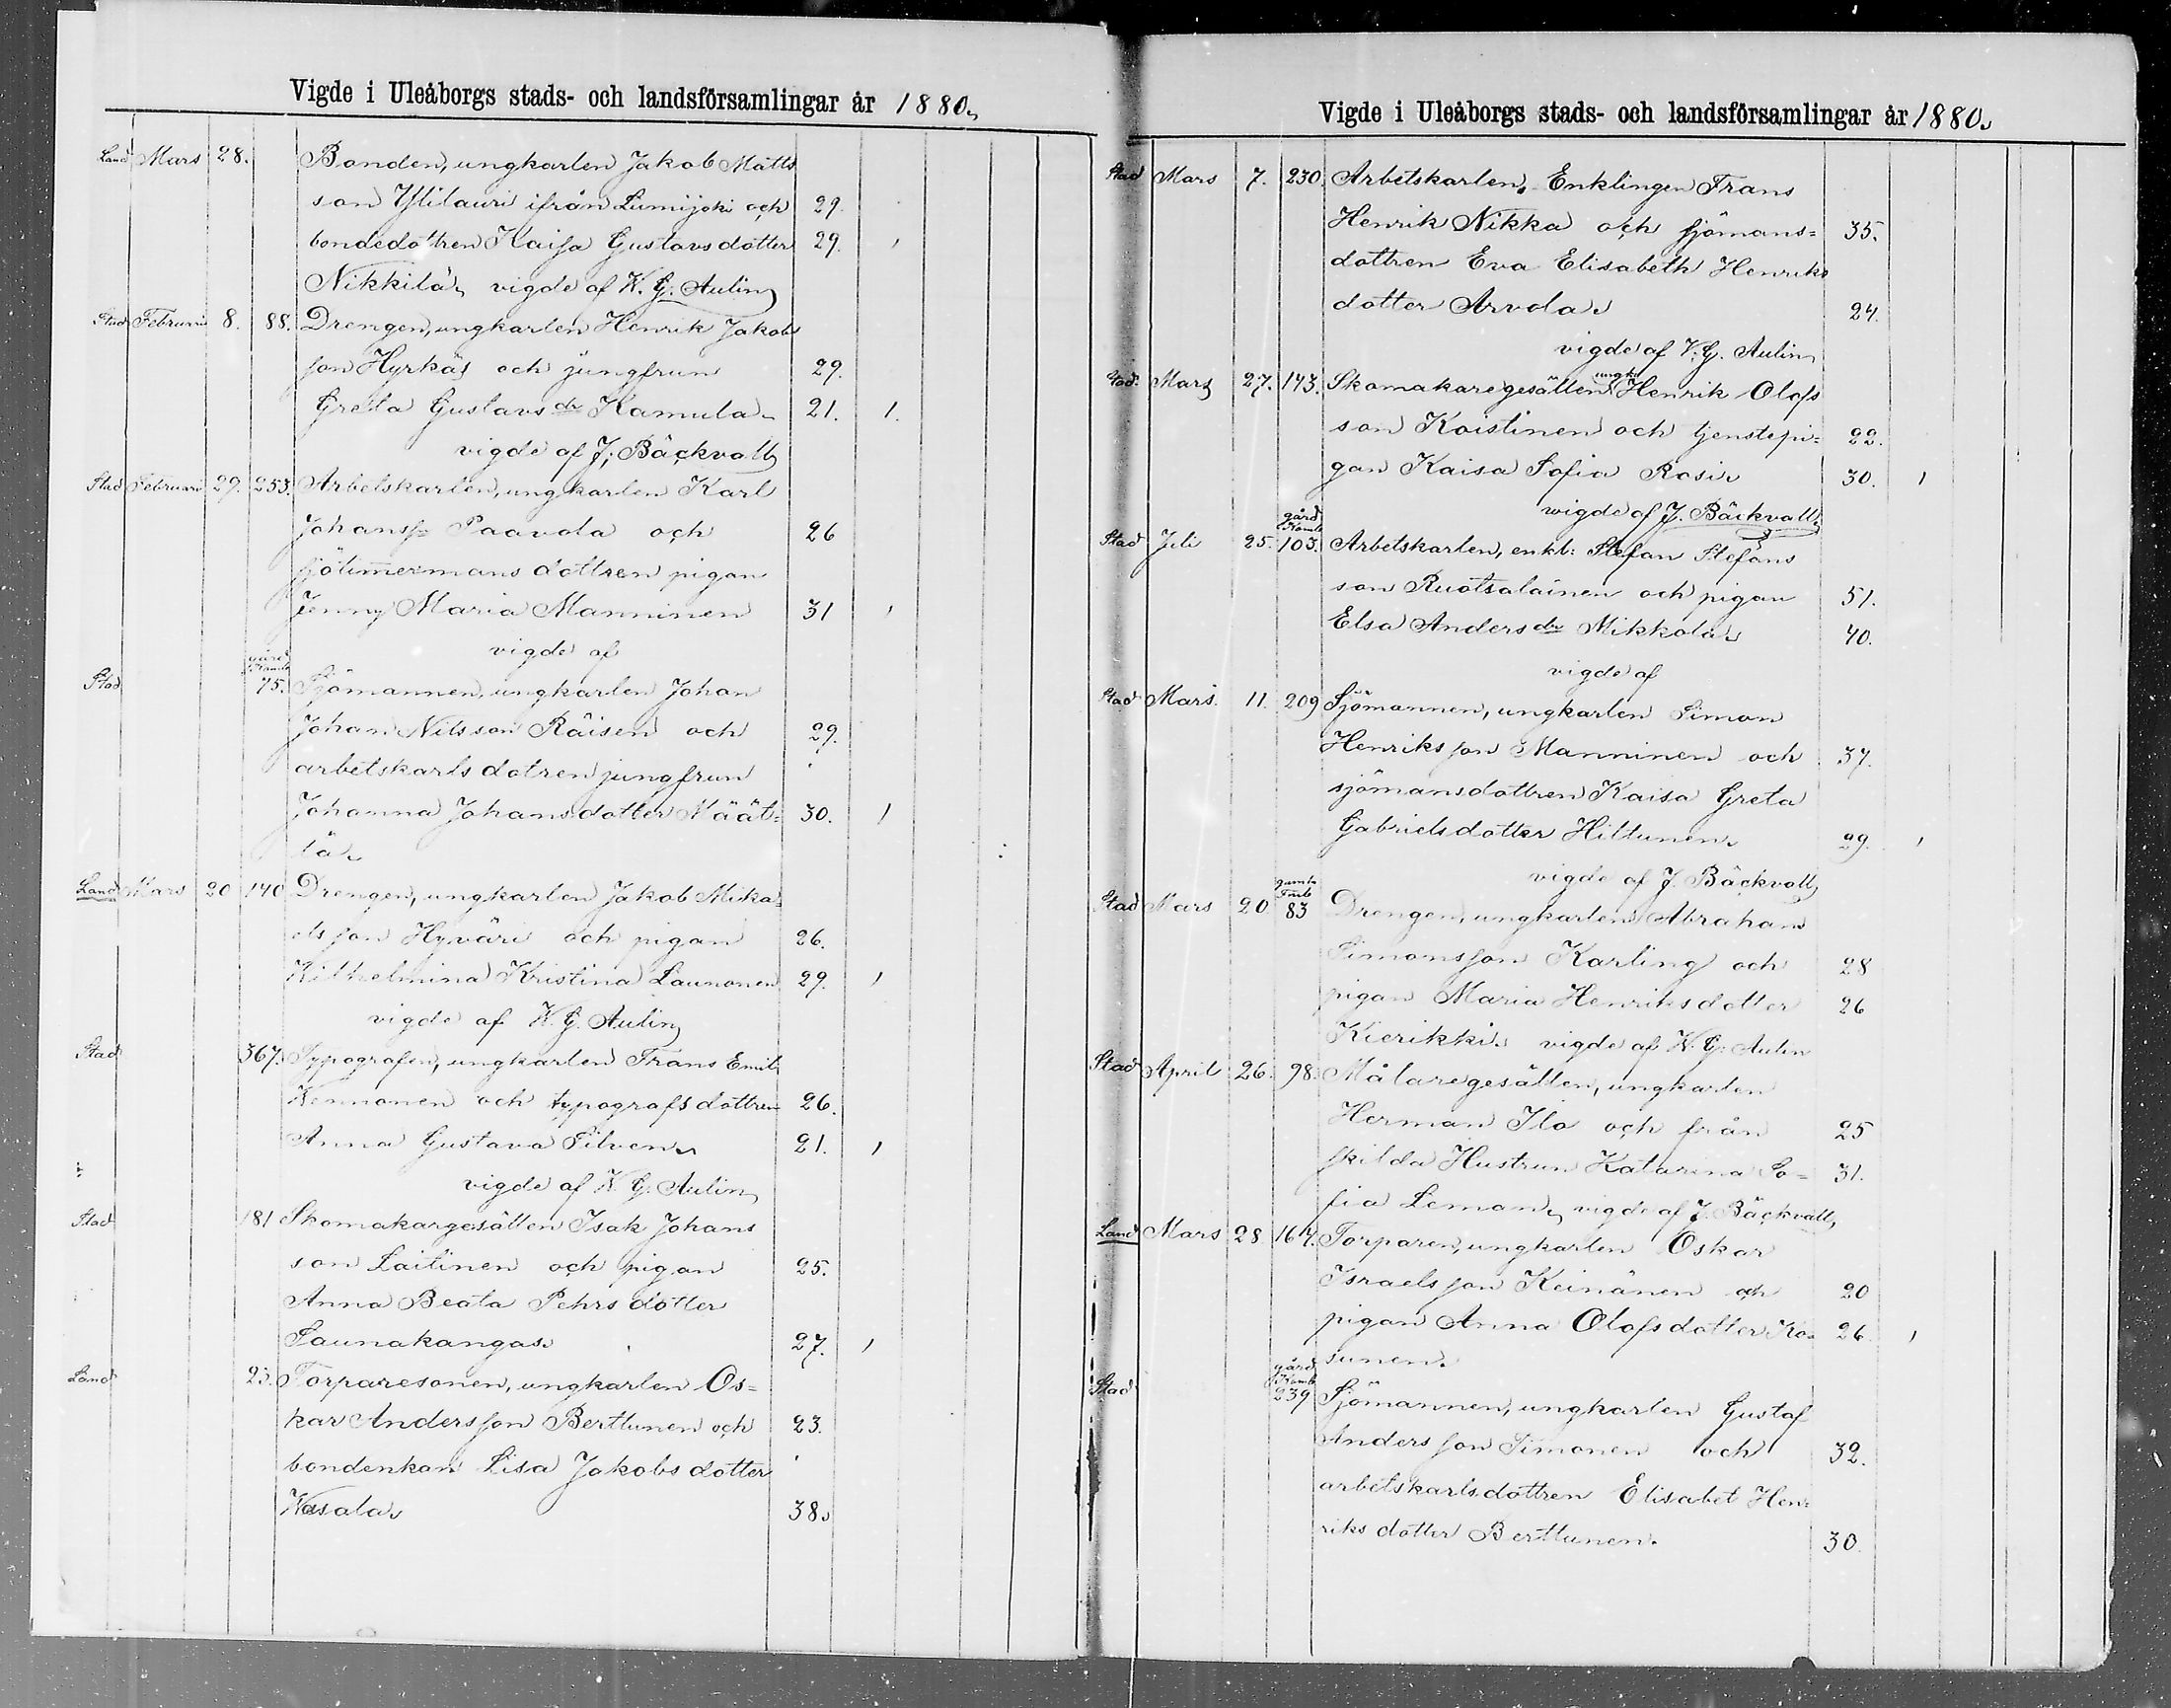 Vigde i Uleåborgs stads- och landsförsamlingar år 1880.
Land Mars 28. Bonden, ungkarlen Jakob Matts
son Ylilauri ifrån Lumijoki och 29.
bondedottren Kaisa Gustavsdotter 29. 1
Nikkilä, vigde af K. G. Aulin
Stad Februari 8. 88. Drengen, ungkarlen Henrik Jakobs
son Hyrkäs och jungfrun 29.
Greta Gustavs dr Kamula. 21. 1.
vigde af J. Bäckvall
Stad Februari 29. 253. Arbetskarlen, ungkarlen Karl
Johanss: Paavola och 26
sjötimmermans dottren pigan
Jenny Maria Manninen 31 1
vigde af
Stad 75. Sjömannen, ungkarlen Johan
Johan Nilsson Räisen och 29.
arbetskarls dotren jungfrun
Johanna Johansdotter Määt= 30. 1
tä.
Land Mars 20 140 Drengen, ungkarlen Jakob Mika=
els son Hyväri och pigan 26.
Wilhelmina Kristina Launonen 29. 1
vigde af K. G. Aulin
Stad 367. Typografen, ungkarlen Frans Emil
Wennonen och typografs dottren 26.
Anna Gustava Silven. 21. 1
vigde af K. G. Aulin
Stad 181 Skomakargesällen Isak Johans
son Laitinen och pigan 25.
Anna Beata Pehrs dotter
Saunakangas. 27. 1
Land 23. Torparesonen, ungkarlen Os=
kar Andersson Berttunen och 23.
bondenkan Lisa Jakobs dotter
Wasala. 38.
Vigde i Uleåborgs stads- och landsförsamlingar år 1880.
Stad Mars 7. 230. Arbetskarlen, Enklingen Frans
Henrik Nikka och sjömans= 35.
dottren Eva Elisabeth Henriks
dotter Arvola. 24.
vigde af K. G. Aulin
Stad Mars 27. 143. Skomakaregesällen ungk Henrik Olofs
son Koistinen och tjenstepi= 22.
gan Kaisa Sofia Rosi. 30. 1
wigde af J. Bäckvall
gård
Stad Juli 25. 103. Arbetskarlen, enkl: Stefan Stefans
son Ruotsalainen och pigan 51.
Elsa Anders dr Mikkola. 40.
vigde af
Stad Mars. 11. 209 Sjömannen, ungkarlen Simon
Henriksson Manninen och 37.
sjömansdottren Kaisa Greta
Gabrielsdotter Hiltunen. 29. 1
vigde af J. Bäckvall
gamla
Stad Mars 20 83 Drengen, ungkarlen Abraham
Simonsson Karling och 28
pigan Maria Henriksdotter 26
Kierikki. vigde af K. G. Aulin
Stad April 26. 98. Målaregesällen, ungkarlen
Herman Ilo och från 25
skilda Hustrun Katarina So= 31.
fia Leman, vigde af J. Bäckvall,
Land Mars 28 164. Torparen, ungkarlen Oskar
Israelsson Keinänen och 20
pigan Anna Olofsdotter Ko= 26. 1
sunen.
gård
Stad 239 Sjömannen, ungkarlen Gustaf
Andersson Simonen och 32.
arbetskarlsdottren Elisabet Hen=
riks dotter Berttunen. 30.